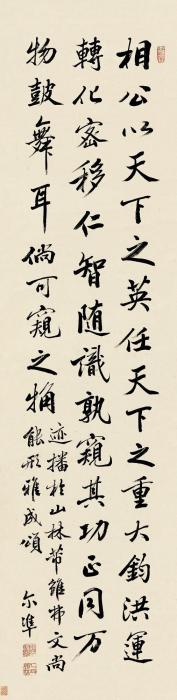 相公以天下之英任天下之重大鈞洪運
轉化密移仁智随識孰窺其功正同万
物鼓舞耳倘可窺之犄
迹播於山林帶雖弗文尚
能形雅成頌
尔準